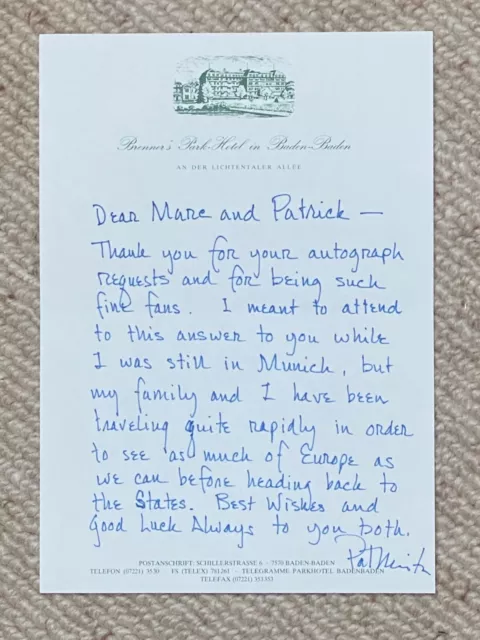 Brenner's Park-Hotel in Baden-Baden
AN DER LICHTENTALER ALLEE
Dear Marc and Patrick —
Thank you for your autograph
requests and for being such
fine fans. I meant to attend
to this answer to you while
I was still in Munich, but
my family and I have been
traveling quite rapidly in order
to see as much of Europe as
we can before heading back to
the States. Best Wishes and
Good Luck Always to you both.
Pat
POSTANSCHRIFT: SCHILLERSTRASSE 6 – 7570 BADEN-BADEN
TELEFON (07221) 3530 FS (TELEX) 781261 – TELEGRAMME PARKHOTEL BADENBADEN
TELEFAX (07221) 353353